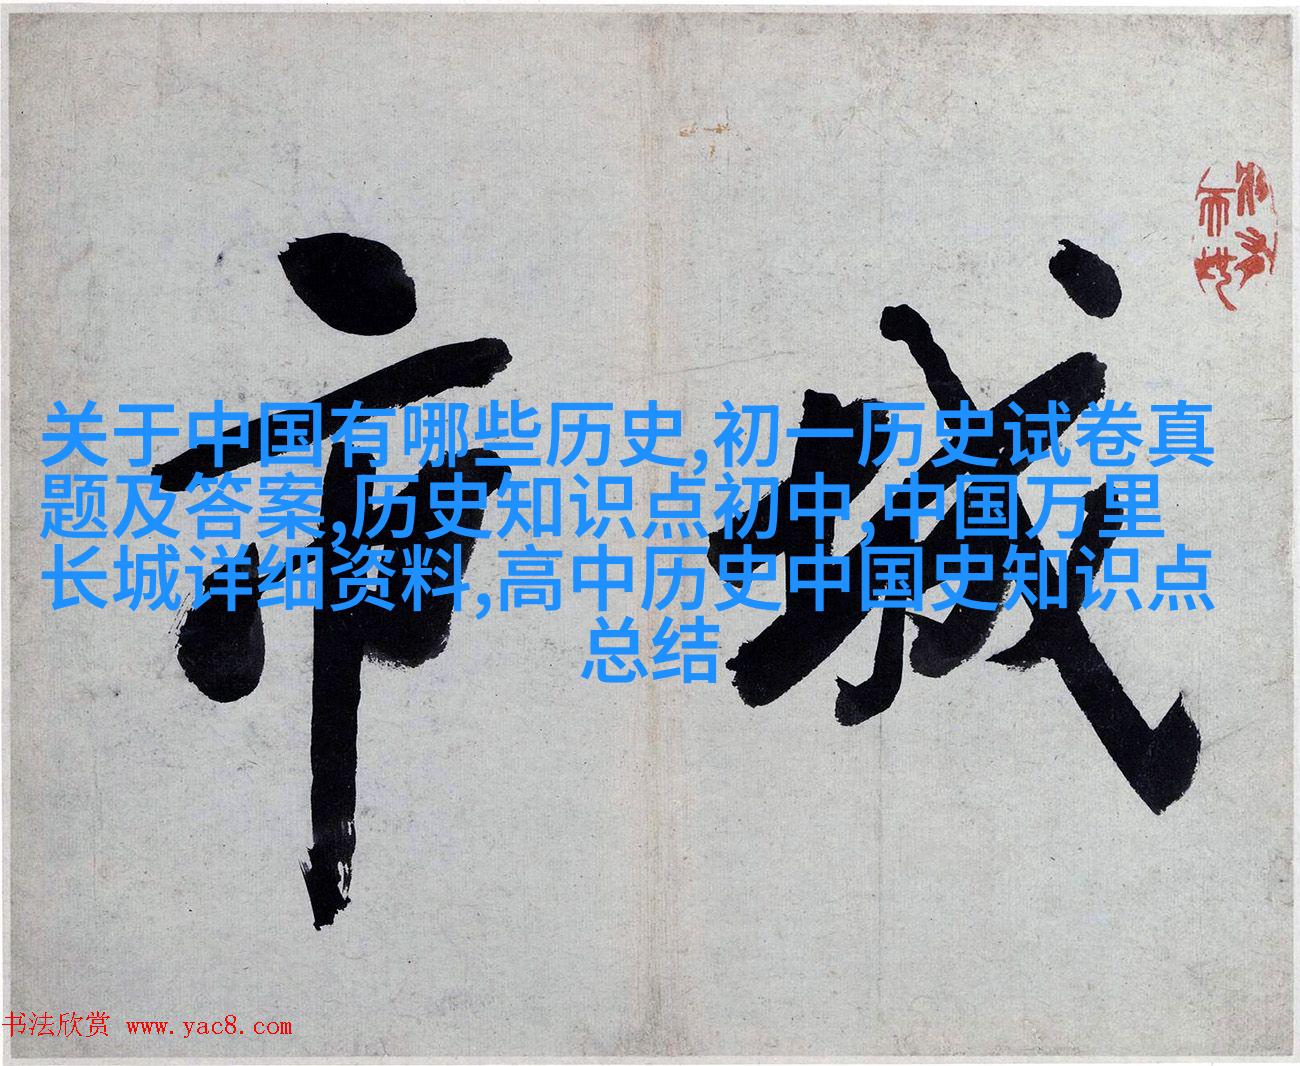 城市
关于中国有哪些历史,初一历史试卷真
题及答案,历史知识点初中,中国万里
长城详细资料,高中历史中国史知识点
总结
书法欣赏 www.yac8.com